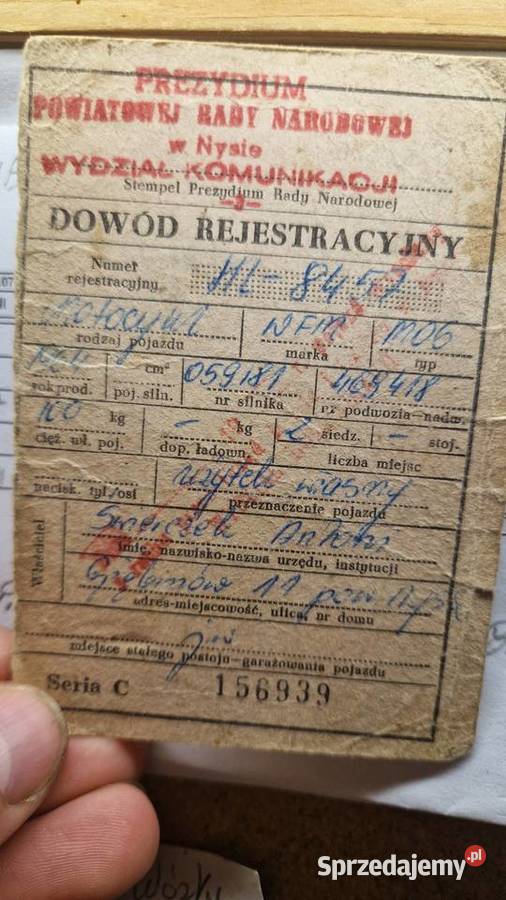 PREZYDIUM
POWIATOWEJ RADY NARODOWEJ
w Nysie
WYDZIAŁ KOMUNIKACJI
Stempel Prezydium Rady Narodowej
-3-
DOWÓD REJESTRACYJNY
Numer rejestracyjny
8457
Motocykl WFM M06
rodzaj pojazdu marka typ
cm³ 059181 469418
rok prod. poj. siln. nr silnika nr podwozia-nadw.
100 kg - kg 2 siedz. - stoj.
cięż. wł. poj. dop. ładown. liczba miejsc
użytek własny
nacisk. tyl./osi przeznaczenie pojazdu
Antoni
imię, nazwisko-nazwa urzędu, instytucji
Właściciel
11 pow Nysa
adres-miejscowość, ulica, nr domu
miejsce stałego postoju-garażowania pojazdu
Seria C 156939
Sprzedajemy.pl